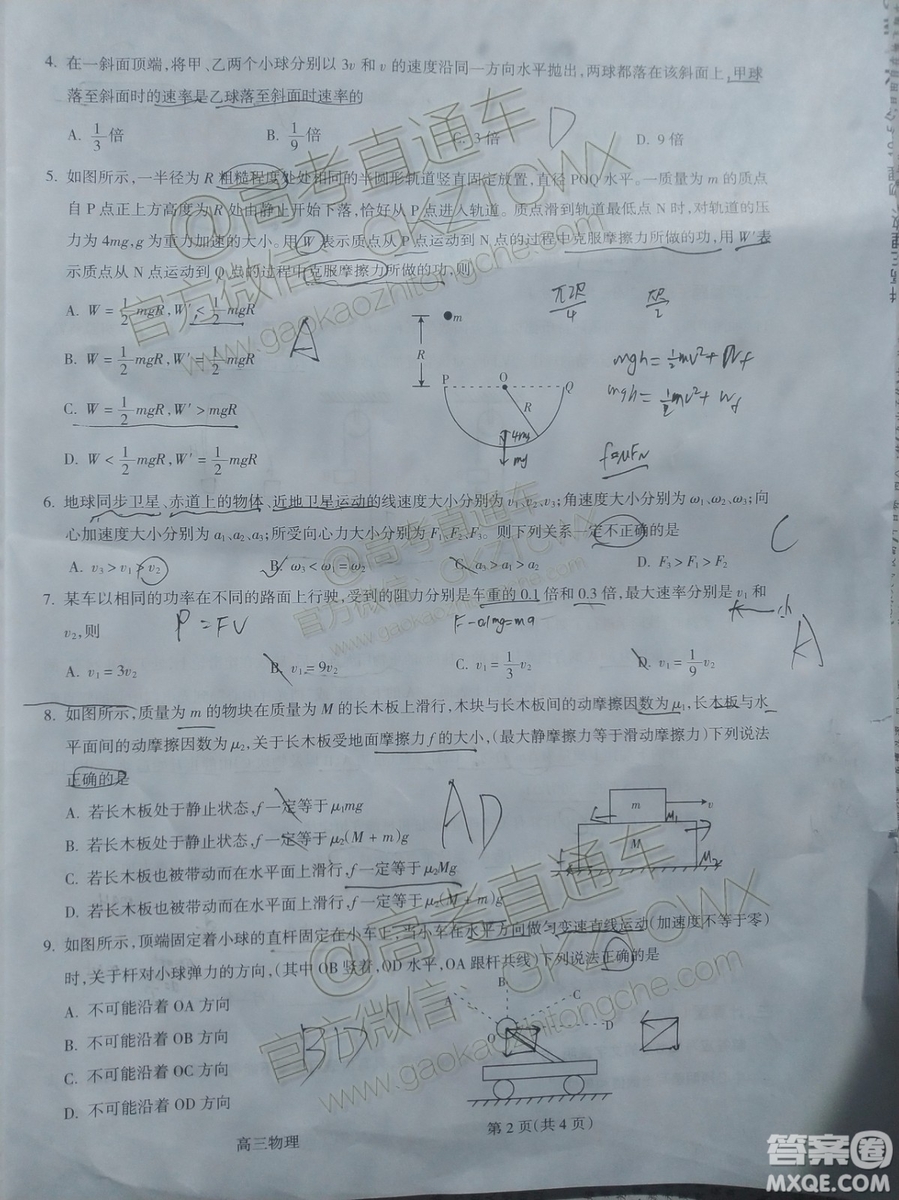 4. 在一斜面顶端,将甲、乙两个小球分别以 3v 和 v 的速度沿同一方向水平抛出,两球都落在该斜面上,甲球
落至斜面时的速率是乙球落至斜面时速率的
A. 1/3 倍 B. 1/9 倍 C. 3 倍 D. 9 倍
D
5. 如图所示,一半径为 R 粗糙程度处处相同的半圆形轨道竖直固定放置,直径 POQ 水平。一质量为 m 的质点
自 P 点正上方高度为 R 处由静止开始下落,恰好从 P 点进入轨道。质点滑到轨道最低点 N 时,对轨道的压
力为 4mg,g 为重力加速的大小。用 W 表示质点从 P 点运动到 N 点的过程中克服摩擦力所做的功,用 W′表
示质点从 N 点运动到 Q 点的过程中克服摩擦力所做的功,则
A. W = 1/2 mgR,W′ < 1/2 mgR
B. W = 1/2 mgR,W′ = 1/2 mgR
C. W = 1/2 mgR,W′ > mgR
D. W < 1/2 mgR,W′ = 1/2 mgR
A
m
R
P O Q
R
4mg
mg
π2R/4 πR/2
mgh = 1/2 mv² + Wf
mgh = 1/2 mv² + Wf
f=μFN
6. 地球同步卫星、赤道上的物体、近地卫星运动的线速度大小分别为 v₁、v₂、v₃;角速度大小分别为 ω₁、ω₂、ω₃;向
心加速度大小分别为 a₁、a₂、a₃;所受向心力大小分别为 F₁、F₂、F₃。则下列关系一定不正确的是
C
A. v₃ > v₁ > v₂ B. ω₃ < ω₁ = ω₂ C. a₃ > a₁ > a₂ D. F₃ > F₁ > F₂
7. 某车以相同的功率在不同的路面上行驶,受到的阻力分别是车重的 0.1 倍和 0.3 倍,最大速率分别是 v₁ 和
v₂,则
P = FV
F-0.1mg=ma
A
A. v₁ = 3v₂ B. v₁ = 9v₂ C. v₁ = 1/3 v₂ D. v₁ = 1/9 v₂
8. 如图所示,质量为 m 的物块在质量为 M 的长木板上滑行,木块与长木板间的动摩擦因数为 μ₁,长木板与水
平面间的动摩擦因数为 μ₂,关于长木板受地面摩擦力 f 的大小,(最大静摩擦力等于滑动摩擦力)下列说法
正确的是
A. 若长木板处于静止状态,f 一定等于 μ₁mg
B. 若长木板处于静止状态,f 一定等于 μ₂(M + m)g
C. 若长木板也被带动而在水平面上滑行,f 一定等于 μ₂Mg
D. 若长木板也被带动而在水平面上滑行,f 一定等于 μ₂(M + m)g
AD
m v
M
M₁
M₂
9. 如图所示,顶端固定着小球的直杆固定在小车上,当小车在水平方向做匀变速直线运动(加速度不等于零)
时,关于杆对小球弹力的方向,(其中 OB 竖着,OD 水平,OA 跟杆共线)下列说法正确的是
A. 不可能沿着 OA 方向
B. 不可能沿着 OB 方向
C. 不可能沿着 OC 方向
D. 不可能沿着 OD 方向
BD
A B C
O D
高三物理
第 2 页(共 4 页)
@高考直通车
官方微信:GKZTCWX
www.gaokaozhitongche.com
@高考直通车
官方微信:GKZTCWX
www.gaokaozhitongche.com
@高考直通车
官方微信:GKZTCWX
www.gaokaozhitongche.com
答案圈
MXQE.COM